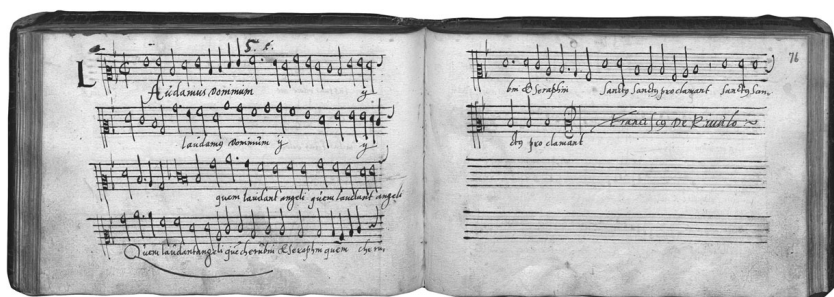 5. f.
Laudamus dominum ij
laudamus dominum ij ij
quem laudant angeli quem laudant angeli
Quem laudant angeli quē cherubin & seraphin quem cheru,
76
bin & seraphin sanctus sanctus proclamant sanctus san,
ctus pro clamant